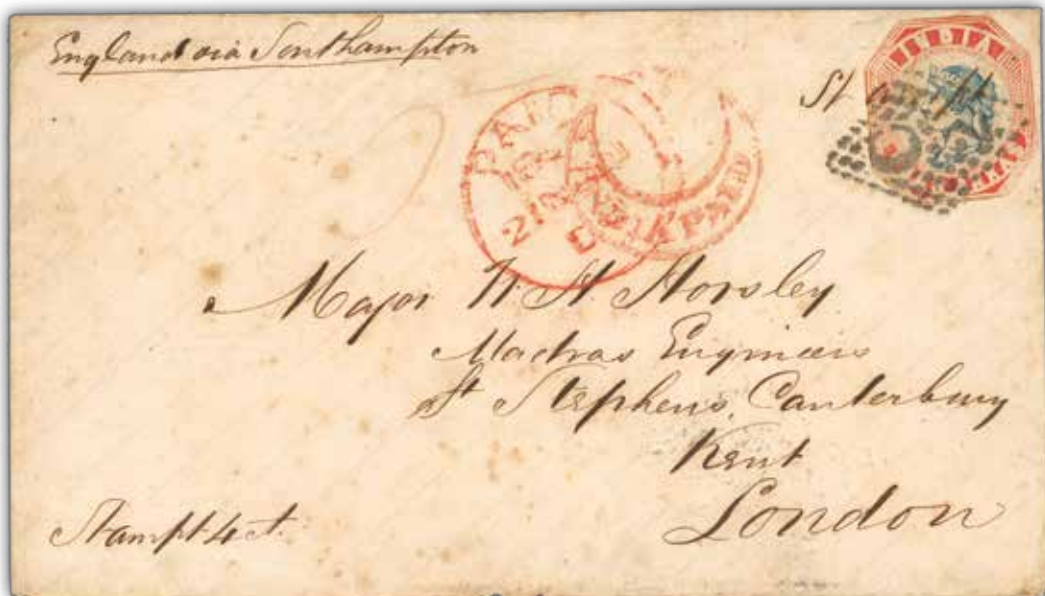 England via Southampton
INDIA
St
PAID
INDIA PAID
Major W. H. Horsley
Madras Engineers
St Stephens, Canterbury
Kent
London
Stampt 4 A.